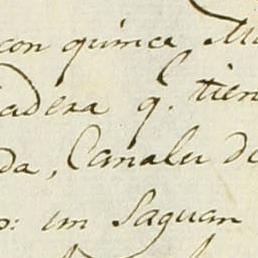 con quince
adera q. tien
da, Canales de
un Saguan